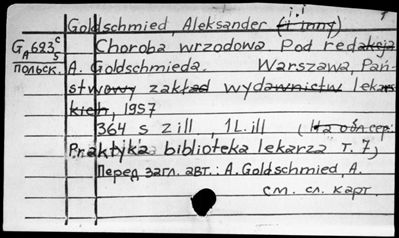 Goldschmied, Aleksander (i inny) i.i
G A 623 c s Choroba wrzodowa. Pod redakcja
польск. A. Goldschmieda. Warszawa, Pań-
stwowy zakład wydawnictw lekars-
kich, 1957
364 s z ill, 1L. ill (На обл. сер.:
Praktyka biblioteka lekarza т. 7)
Перед загл. авт.: A. Goldschmied, A.
см. сл. карт.